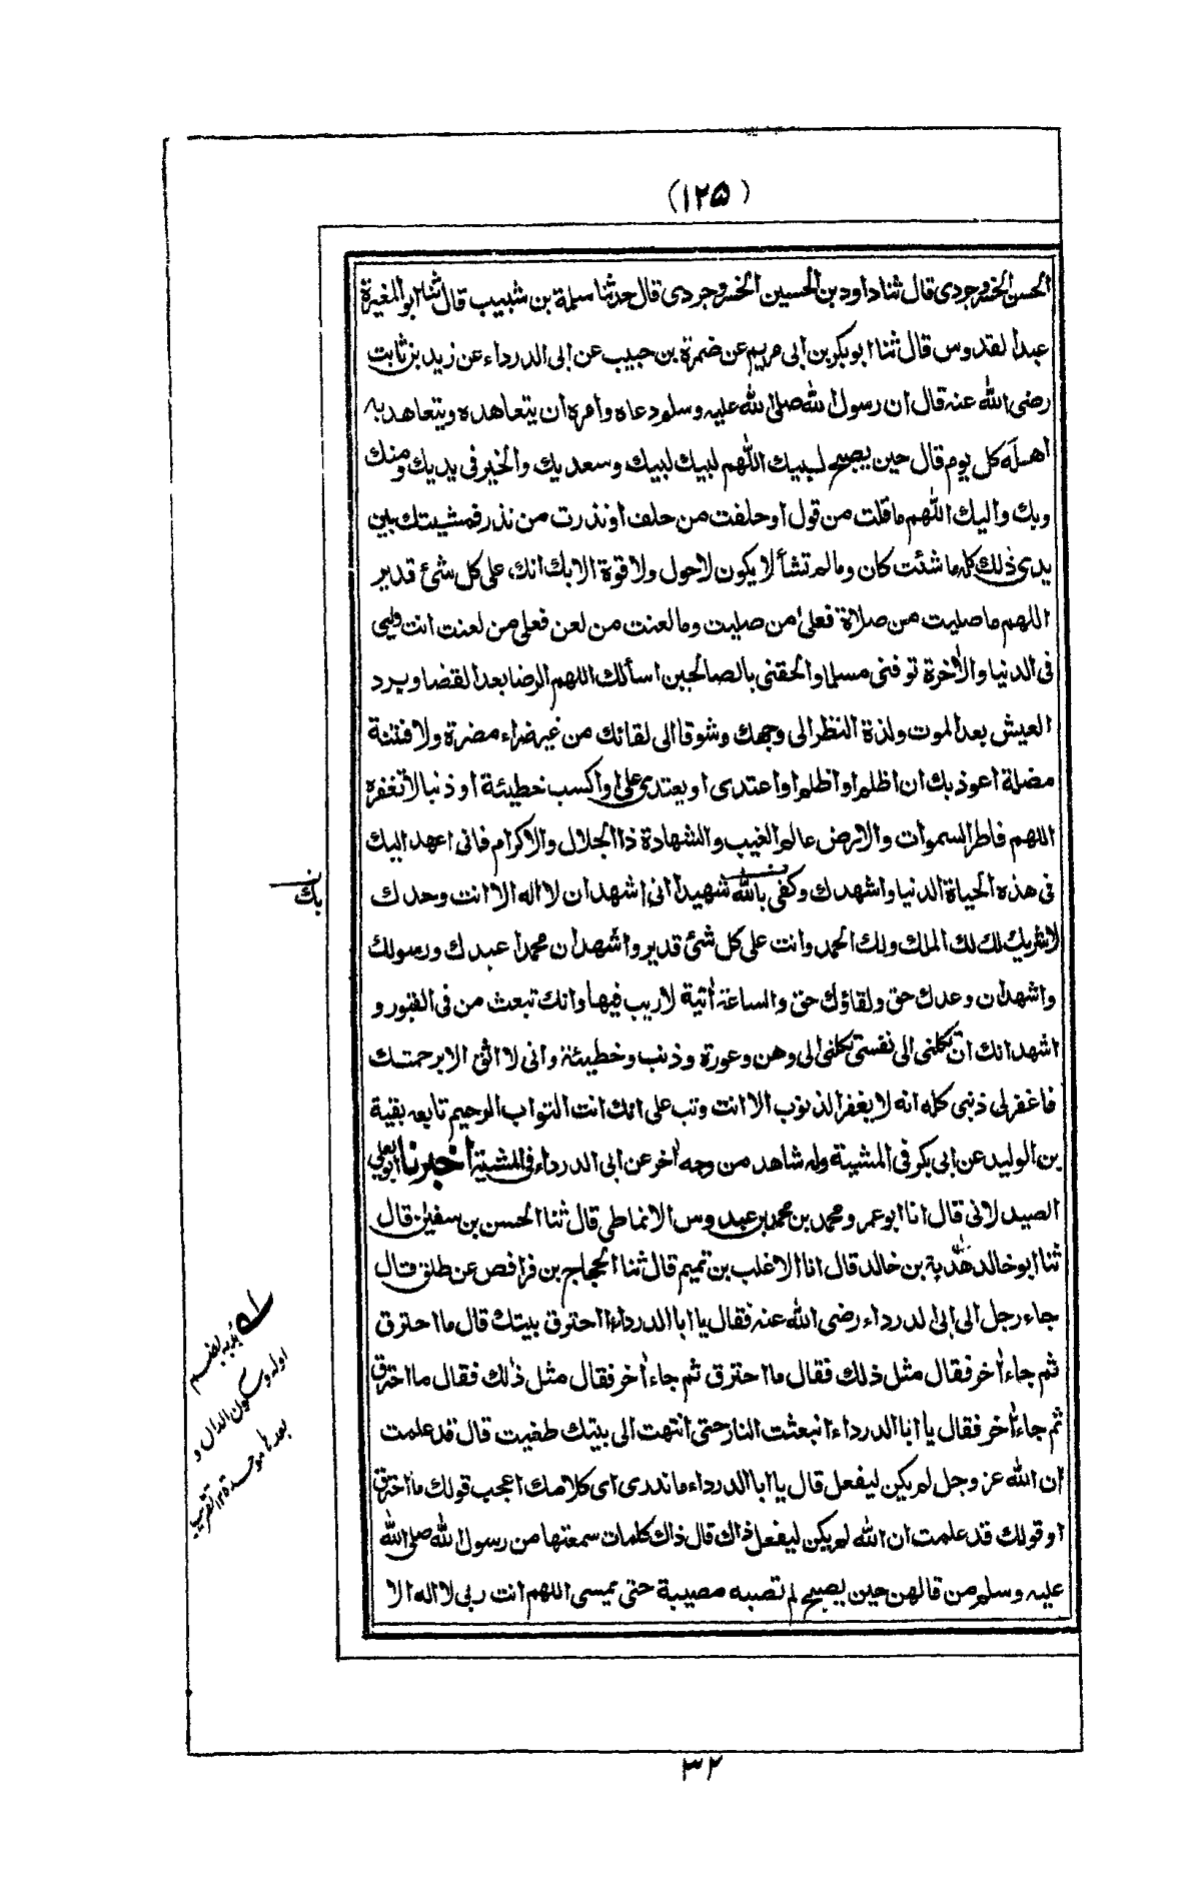 (١٢٥)
الحسن الخسروجردى قال ثنا داود بن الحسين الخسروجردى قال حدثنا سلمة بن شبيب قال ثنا ابو المغيرة
عبد القدوس قال ثنا ابو بكر بن ابى مريم عن ضمرة بن حبيب عن ابى الدرداء عن زيد بن ثابت
رضى الله عنه قال ان رسول الله صلى الله عليه وسلم دعاه وامره ان يتعاهده ويتعاهد به
اهله كل يوم قال حين يصبح لبيك اللهم لبيك لبيك وسعديك والخير فى يديك ومنك
وبك واليك اللهم ما قلت من قول او حلفت من حلف او نذرت من نذر فمشيتك بين
يدى ذلك كله ما شئت كان وما لم تشأ لا يكون لا حول ولا قوة الا بك انك على كل شئ قدير
اللهم ما صليت من صلاة فعلى من صليت وما لعنت من لعن فعلى من لعنت انت وليى
فى الدنيا والأخرة توفنى مسلما والحقنى بالصالحين اسألك اللهم الرضا بعد القضا وبرد
العيش بعد الموت ولذة النظر الى وجهك وشوقا الى لقائك من غير ضراء مضرة ولا فتنة
مضلة اعوذ بك ان اظلم او اظلم او اعتدى او يعتدى على او اكسب خطيئة او ذنبا لا تغفره
اللهم فاطر السموات والارض عالم الغيب والشهادة ذا الجلال والاكرام فانى اعهد اليك
فى هذه الحياة الدنيا واشهدك وكفى بالله شهيدا انى اشهد ان لا اله الا انت وحدك
بك
لا شريك لك لك الملك ولك الحمد وانت على كل شئ قدير واشهد ان محمدا عبدك ورسولك
واشهد ان وعدك حق ولقاؤك حق والساعة أتية لا ريب فيها وانك تبعث من فى القبور و
اشهد انك ان تكلنى الى نفسى تكلنى الى وهن وعورة وذنب وخطيئة وانى لا اثق الا برحمتك
فاغفر لى ذنبى كله انه لا يغفر الذنوب الا انت وتب على انك انت التواب الرحيم تابعه بقية
بن الوليد عن ابى بكر فى المشيئة وله شاهد من وجه أخر عن ابى الدرداء فى المشيئة اخبرنا ابو يعلى
الصيدلانى قال انا ابو عمرو محمد بن محمد بن عبدوس الانماطى قال ثنا الحسن بن سفين قال
ثنا ابو خالد هدبة بن خالد قال انا الاغلب بن تميم قال ثنا الحجاج بن فرافص عن طلق قال
جاء رجل الى ابى الدرداء رضى الله عنه فقال يا ابا الدرداء احترق بيتك قال ما احترق
ثم جاء أخر فقال مثل ذلك فقال ما احترق ثم جاء أخر فقال مثل ذلك فقال ما احترق
ثم جاء أخر فقال يا ابا الدرداء انبعثت النار حتى انتهت الى بيتك طفيت قال قد علمت
ان الله عز وجل لم يكن ليفعل قال يا ابا الدرداء ما ندرى اى كلامك اعجب قولك ما احترق
او قولك قد علمت ان الله لم يكن ليفعل ذاك قال ذاك كلمات سمعتها من رسول الله صلى الله
عليه وسلم من قالهن حين يصبح لم تصبه مصيبة حتى يمسى اللهم انت ربى لا اله الا
له هدبة بضم
اوله وسكون الدال و
بعدها موحدة ١٢ تقريب
٣٢